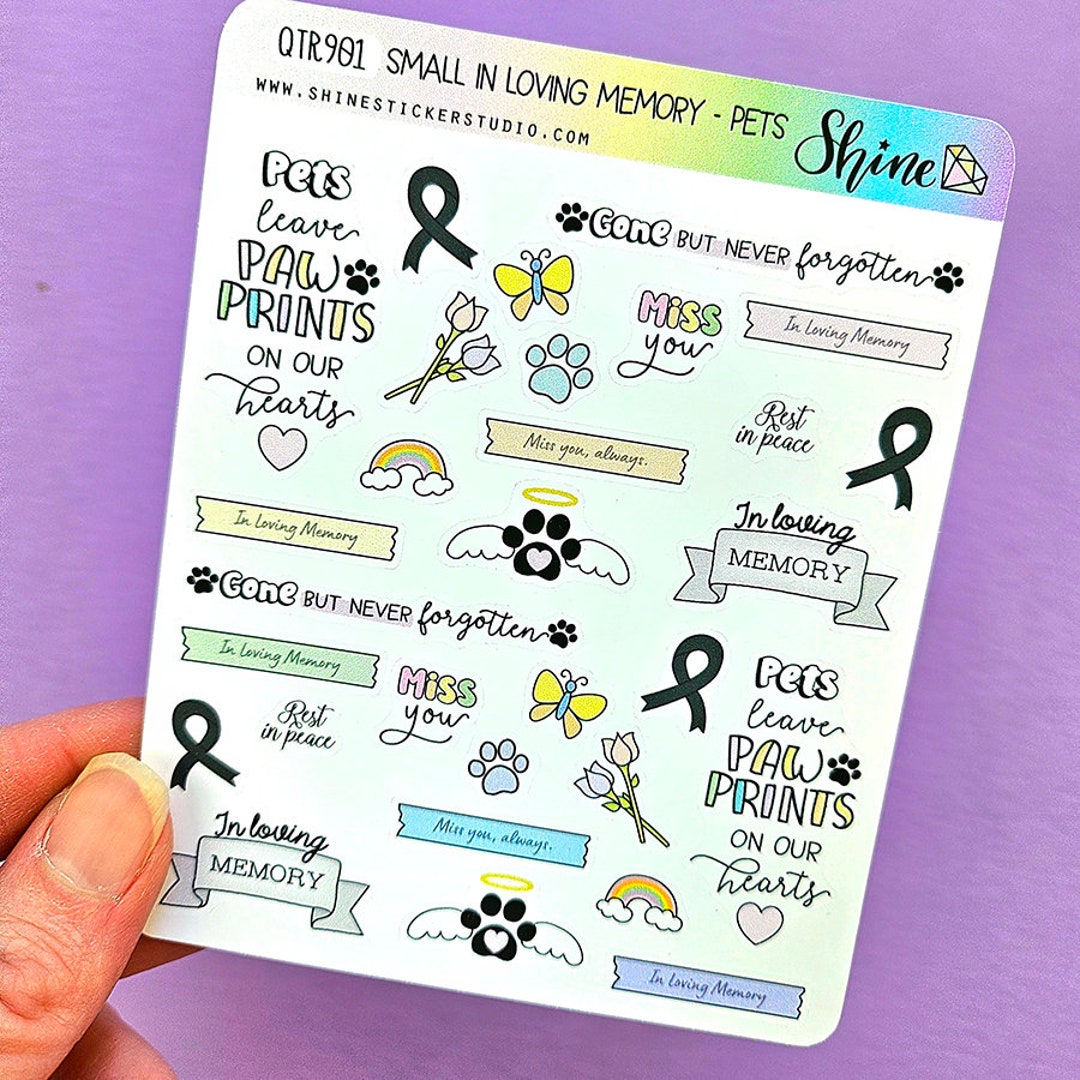 QTR901 SMALL IN LOVING MEMORY - PETS Shine
WWW.SHINESTICKERSTUDIO.COM
Pets
leave
PAW
PRINTS
ON OUR
hearts
Gone BUT NEVER forgotten
Miss
you
In Loving Memory
Rest
in peace
Miss you, always.
In Loving Memory
In loving
MEMORY
Gone BUT NEVER forgotten
In Loving Memory
Miss
you
Rest
in peace
Pets
leave
PAW
PRINTS
ON OUR
hearts
In loving
MEMORY
Miss you, always.
In Loving Memory